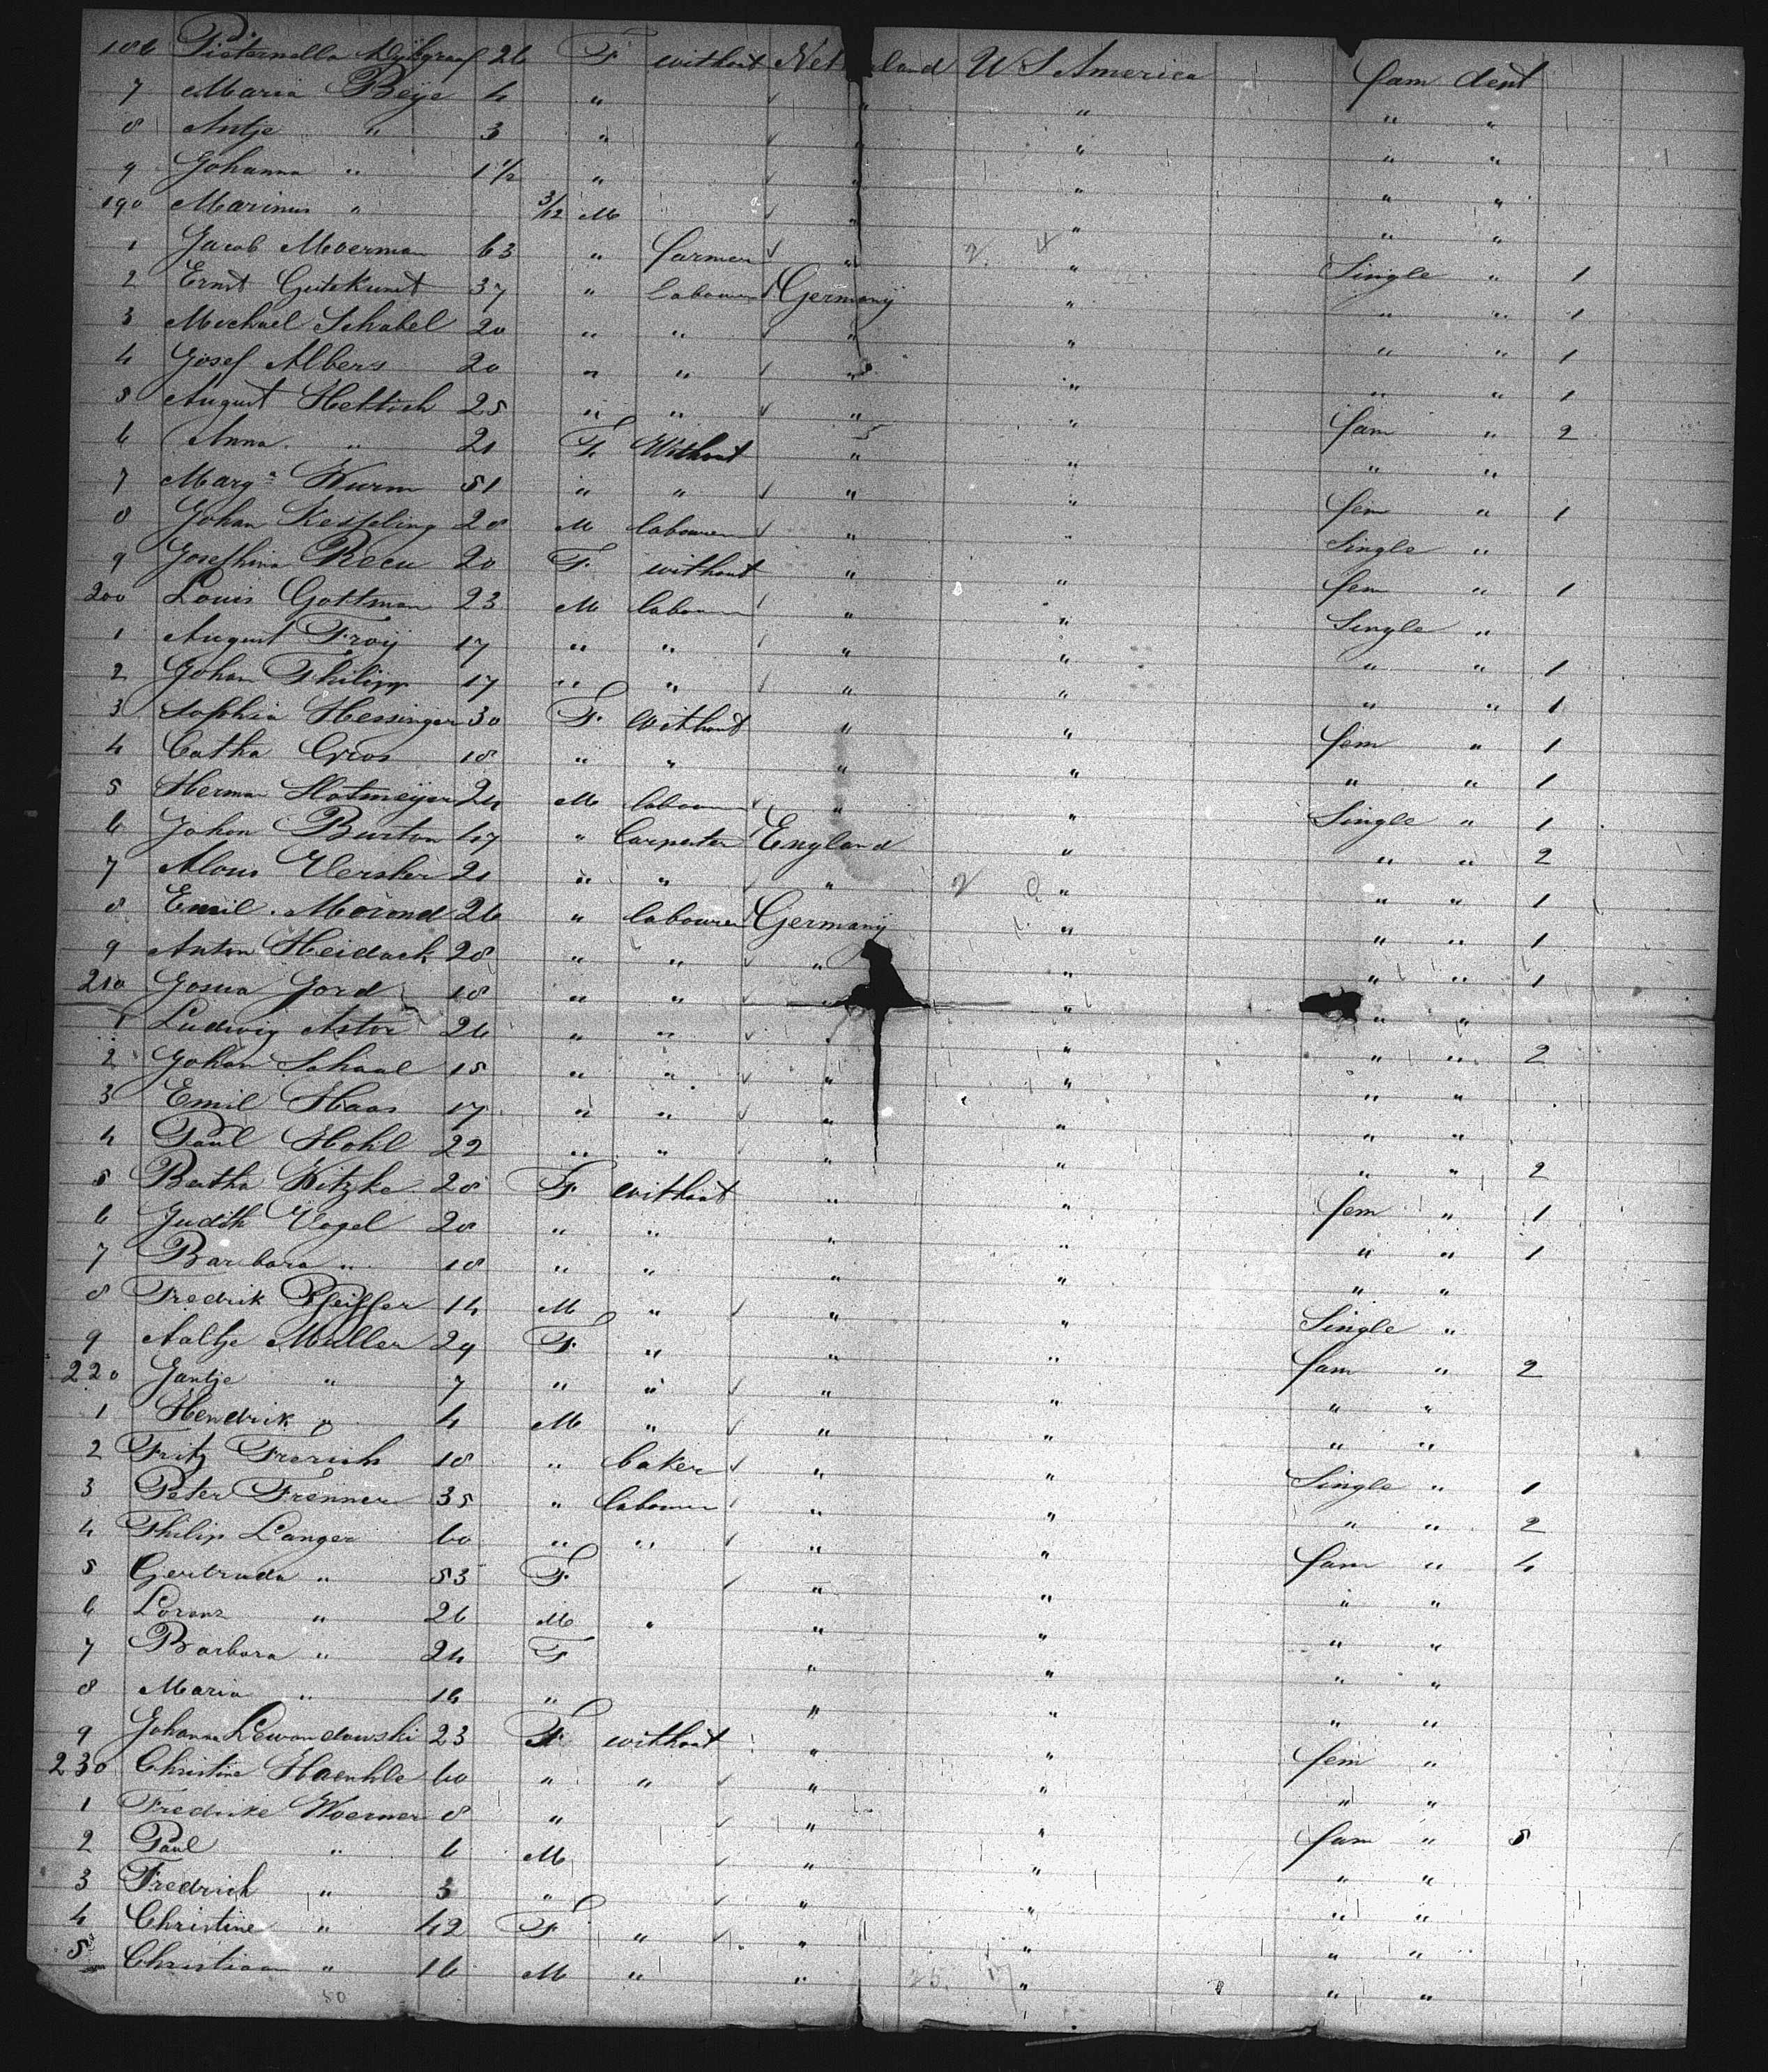 186 Pieternella Wijtgraaf 26 F without Netherland U S America fam dent
7 Maria Beije 4 " " " " "
8 Antje " 3 " " " " "
9 Johanna " 1 1/2 " " " " "
190 Marinus " 3/12 M " " " "
1 Jacob Moerman 63 " farmer " " Single " 1
2 Ernst Gutekunst 37 " labourer Germany " " " 1
3 Michael Schabel 20 " " " " " " 1
4 Josef Albers 20 " " " " " " 1
5 August Hettich 25 " " " " fam " 2
6 Anna " 21 F. Without " " " "
7 Marga Wurm 51 " " " " fem " 1
8 Johan Kesseling 28 M labourer " " Single "
9 Josephina Recu 20 F. without " " fem " 1
200 Louis Gottman 23 M labourer " " Single "
1 August Froij 17 " " " " " " 1
2 Johan Philipp 17 " " " " " " 1
3 Sophia Hessinger 30 F. Without " " fem " 1
4 Catha Gros 18 " " " " " " 1
5 Herman Hotmeijer 24 M labourer " " Single " 1
6 Johon Burton 47 " Carpenter England " " " 2
7 Alois 21 " " " " " " 1
8 Emil Morond 26 " labourer Germanij " " " 1
9 Anton Heidack 28 " " " " " " 1
210 Josua Jord 18 " " " " " "
1 Ludwig Astor 26 " " " " " " 2
2 Johan Schaal 15 " " " " " "
3 Emil Haas 17 " " " " " "
4 Paul Hohl 22 " " " " " " 2
5 Bertha Kitzke 28 F. without " " fem " 1
6 Judith Vogel 20 " " " " " " 1
7 Barbara " 18 " " " " " "
8 Fredrik Pfeiffer 14 M " " " Single "
9 Aaltje Muller 29 F. " " " fam " 2
220 Jantje " 7 " " " " " "
1 Hendrik " 4 M " " " " "
2 Fritz Frerichs 18 " baker " " Single " 1
3 Peter Frenner 35 " labourer " " " " 2
4 Philip Langer 60 " " " " fam " 4
5 Gertruda " 53 F " " " "
6 Lorenz " 26 M " " " " "
7 Barbara " 24 F " " " "
8 Maria " 16 " " " " "
9 Johanna Lewandowski 23 F. without " " fem "
230 Christine Haenhle 60 " " " " " "
1 Fredrike Woerner 8 " " " fam " 5
2 Paul " 6 M " " " "
3 Fredrich " 3 " " " " "
4 Christine " 42 F " " " " "
5 Christiaan " 16 M " " " " "
50